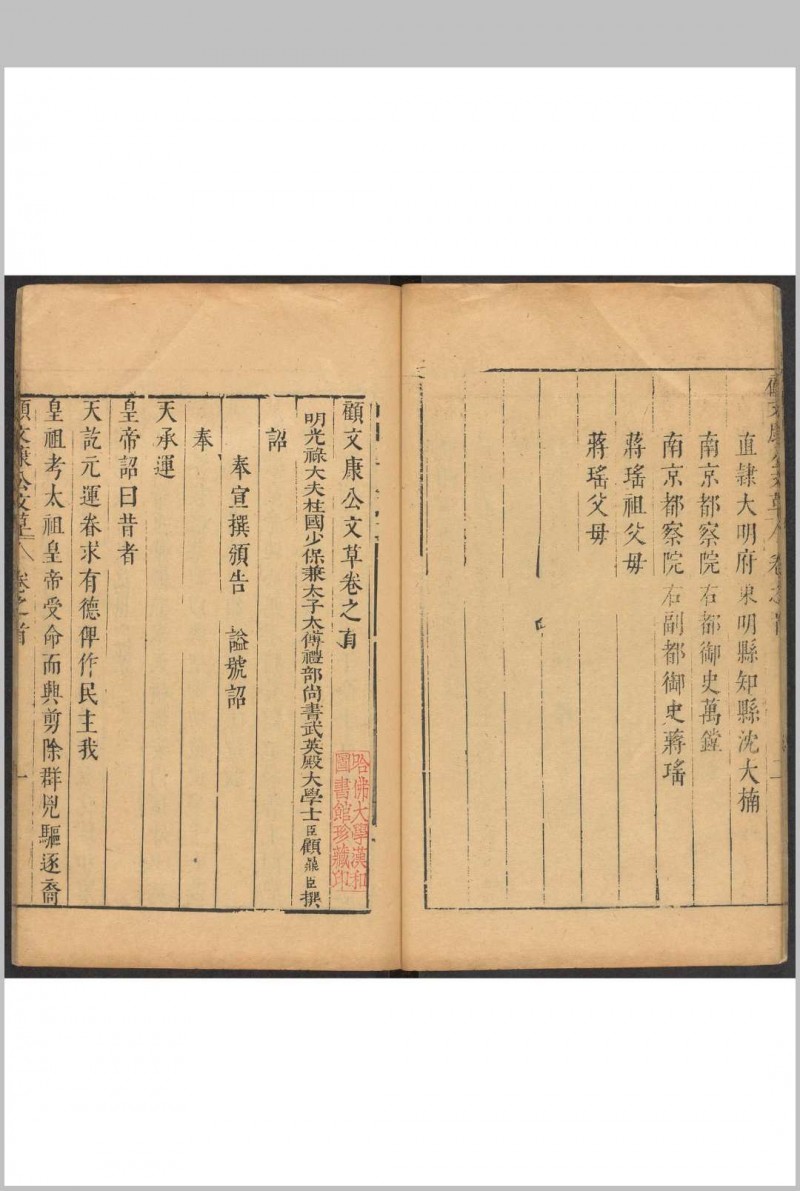 顧文康公文草 卷之首 二
直隸大明府東明縣知縣沈大楠
南京都察院右都御史萬鏜
南京都察院右副都御史蔣瑤
蔣瑤祖父母
蔣瑤父母
顧文康公文草卷之首
明光祿大夫柱國少保兼太子太傅禮部尚書武英殿大學士臣顧鼎臣撰
詔
奉宣撰頒告 謚號詔
奉
天承運
皇帝詔曰昔者
天訖元運眷求有德俾作民主我
皇祖考太祖皇帝受命而興剪除群兇驅逐裔
顧文康公文草 卷之首 一
哈佛大學漢和
圖書館珍藏印